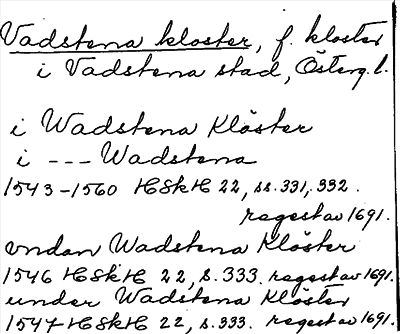 Vadstena kloster, f. kloster
i Vadstena stad, Österg. l.
i Wadstena Klöster
i --- Wadstena
1543-1560 HSkH 22, ss. 331, 332.
regest av 1691.
vndan Wadstena Klöster
1546 HSkH 22, s. 333. regest av 1691.
under Wadstena Klöster
1547 HSkH 22, s. 333. regest av 1691.